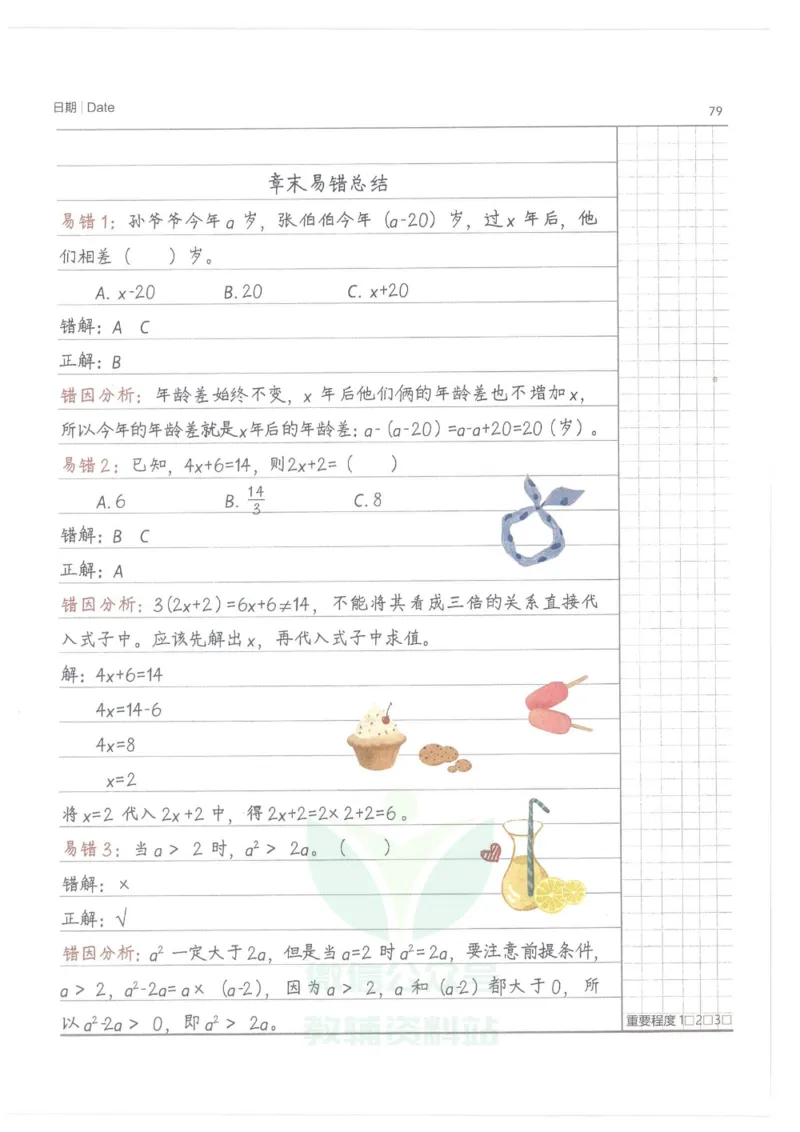 日期 | Date
79
章末易错总结
易错1：孙爷爷今年a岁，张伯伯今年（a-20）岁，过x年后，他
们相差（　　）岁。
A. x-20　　B. 20　　C. x+20
错解：A　C
正解：B
错因分析：年龄差始终不变，x 年后他们俩的年龄差也不增加x，
所以今年的年龄差就是x年后的年龄差：a-（a-20）=a-a+20=20（岁）。
易错2：已知，4x+6=14，则2x+2=（　　）
A. 6　　B. 14/3　　C. 8
错解：B　C
正解：A
错因分析：3(2x+2)=6x+6≠14，不能将其看成三倍的关系直接代
入式子中。应该先解出x，再代入式子中求值。
解：4x+6=14
4x=14-6
4x=8
x=2
将x=2 代入2x+2中，得2x+2=2×2+2=6。
易错3：当a＞2时，a²＞2a。（　　）
错解：×
正解：√
错因分析：a² 一定大于2a，但是当a=2 时a²=2a，要注意前提条件，
a＞2，a²-2a=a×（a-2），因为a＞2，a 和（a-2）都大于0，所
以a²-2a＞0，即a²＞2a。
重要程度 1□2□3□
微信公众号
教辅资料站